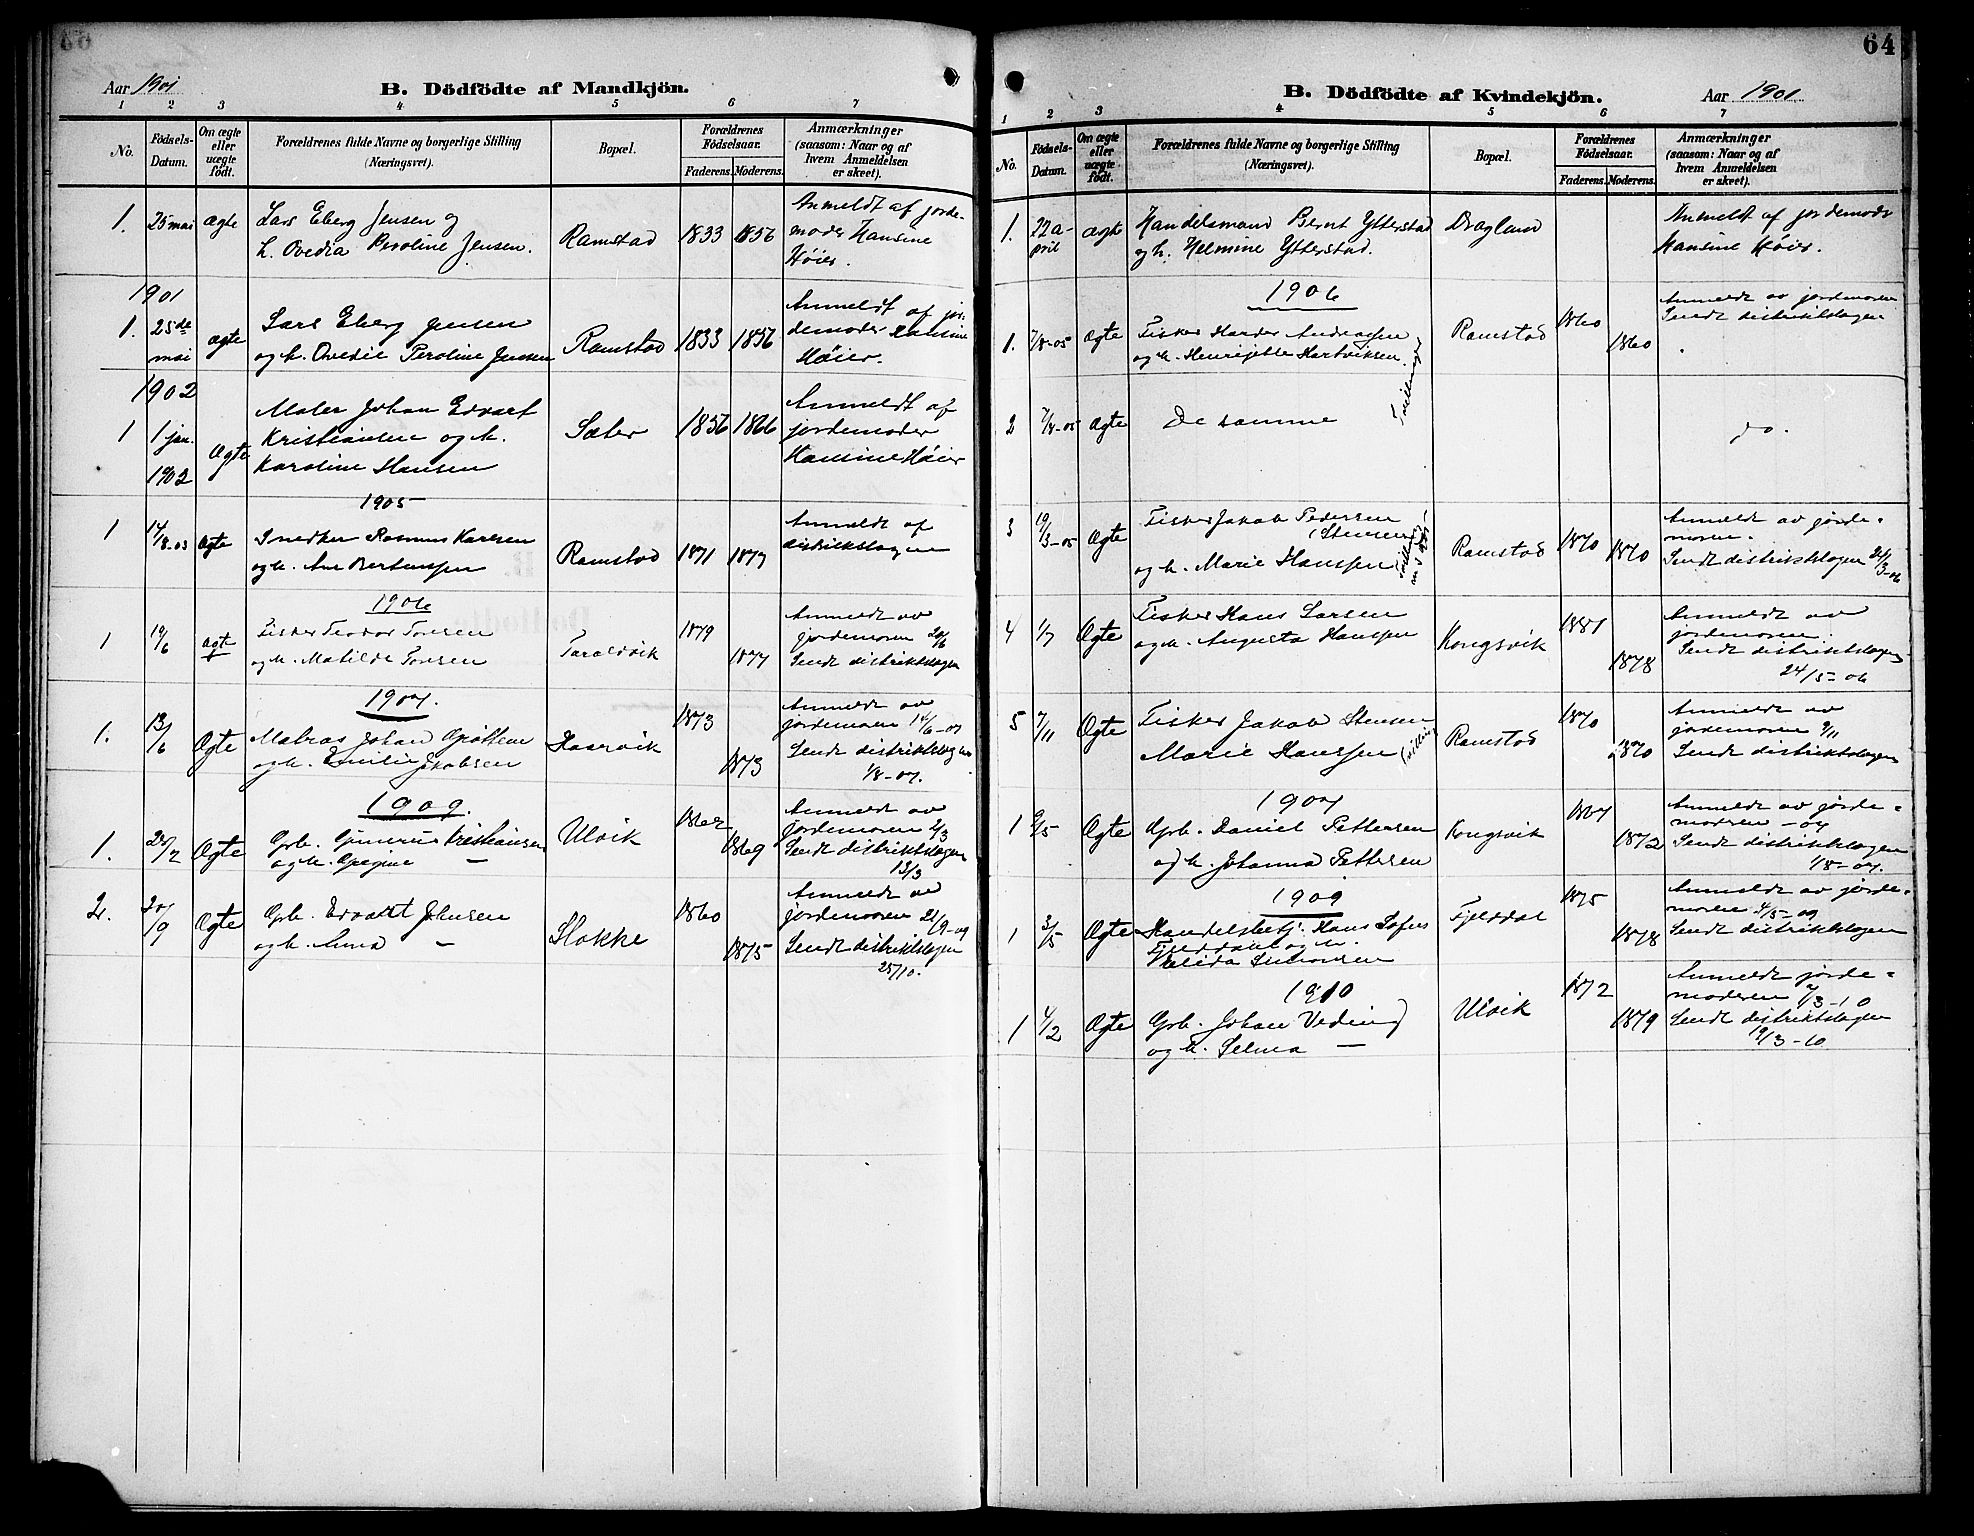 Aar 1901
B. Dödfödte af Mandkjön.
1 2 3 4 5 6 7
No.
Födsels-Datum.
Om ægte eller uægte födt.
Forældrenes fulde Navne og borgerlige Stilling
(Næringsvei).
Bopæl.
Forældrenes Födselsaar.
Faderens. Moderens.
Anmærkninger
(saasom: Naar og af
hvem Anmeldelsen
er skeet).
1. 25 mai ægte Lars Eberg Jensen og
h. Ovedia Peroline Jensen. Ramstad 1833 1856
Anmeldt af jorde-
moder Hansine
Höier.
1901
1. 25de mai ægte Lars Eberg Jensen
og h. Ovedie Peroline Jensen Ramstad 1833 1856
Anmeldt af jor-
demoder Hansine
Høier.
1902
1 1 jan. 1902 Ægte Maler Johan Edvart
Kristiansen og h.
Karoline Hansen Sæter 1856 1866
Anmeldt af
jordemoder
Hansine Høier
1905
1 14/8-03 Ægte Snedker Rasmus Karlsen
og h. Ane Bertenssen Ramstad 1871 1877
Anmeldt af
distriktslægen
1906
1 19/6 Ægte Fisker Teodor Toresen
og h. Matilde Toresen Taraldvik 1879 1877
Anmeldt av
jordemoren 20/6
Sendt distriktslægen
1907.
1. 13/6 Ægte Matros Johan
og h. Emilie Jakobsen 1873 1873
Anmeldt av
jordemoren 14/6-07
Sendt distriktslægen
1/8-07.
1909.
1. Ægte Grb. Gunerius Kristiansen
og h. — Ulvik 1862 1869
Anmeldt av
jordemoren 2/3
Sendt distriktslægen
13/3
2. 20/9 Ægte Grb. Edvart Johnsen
og h. Anna — Slokke 1860 1875
Anmeldt av
jordemoren 21/9-09
Sendt distriktslægen
25/10.
64
B. Dödfödte af Kvindekjön.
Aar 1901
1 2 3 4 5 6 7
No.
Födsels-Datum.
Om ægte eller uægte födt.
Forældrenes fulde Navne og borgerlige Stilling
(Næringsvei).
Bopæl.
Forældrenes Födselsaar.
Faderens. Moderens.
Anmærkninger
(saasom: Naar og af
hvem Anmeldelsen
er skeet).
1. 22 april ægte Handelsmand Bernt Ytterstad
og h. Helmine Ytterstad. Dragland
Anmeldt af jordemodr
Hansine Höier.
1906
1. 7/8-05 Ægte Fisker Harder Andreassen
og h. Henrijette Hartviksen. Ramstad 1860 1860
Anmeldt av jordemoren
Sendt distriktslægen
2 7/8-05 Ægte De samme
Tvillinger
do.
3 19/3-05 Ægte Fisker Jakob Pedersen
(Stensen)
og h. Marie Hanssen Ramstad 1870 1870
Anmeldt av jorde-
moren.
Sendt distriktslægen 24/3-06
4 1/7 Ægte Fisker Hans Larsen
og h. Augusta Hanssen Kongsvik 1881 1878
Anmeldt av
jordemoren.
Sendt distriktslægen
24/5-06
5 7/11 Ægte Fisker Jakob Stensen
Marie Hanssen (tvilling Ramstad 1870 1870
Anmeldt av
jordemoren 9/11
Sendt distriktslægen
1907
1 9/5 Ægte Grb. Daniel Pettersen
og h. Johanna Pettersen Kongsvik 1867 1872
Anmeldt av jorde-
moren -07
Sendt distriktslægen
1/8-07.
1909
1 3/5 Ægte Handelsbetj. Hans Lofus
Fjelddal og h.
Simonsen Fjelddal 1875 1878
Anmeldt av jorde-
moren 4/5-09
Sendt distriktslægen
1910
1 4/2 Ægte Grb. Johan Veding
og h. Selma — Ulvik 1872 1879
Anmeldt jorde-
moderen 2/3-10
Sendt distriktslægen
19/3-10